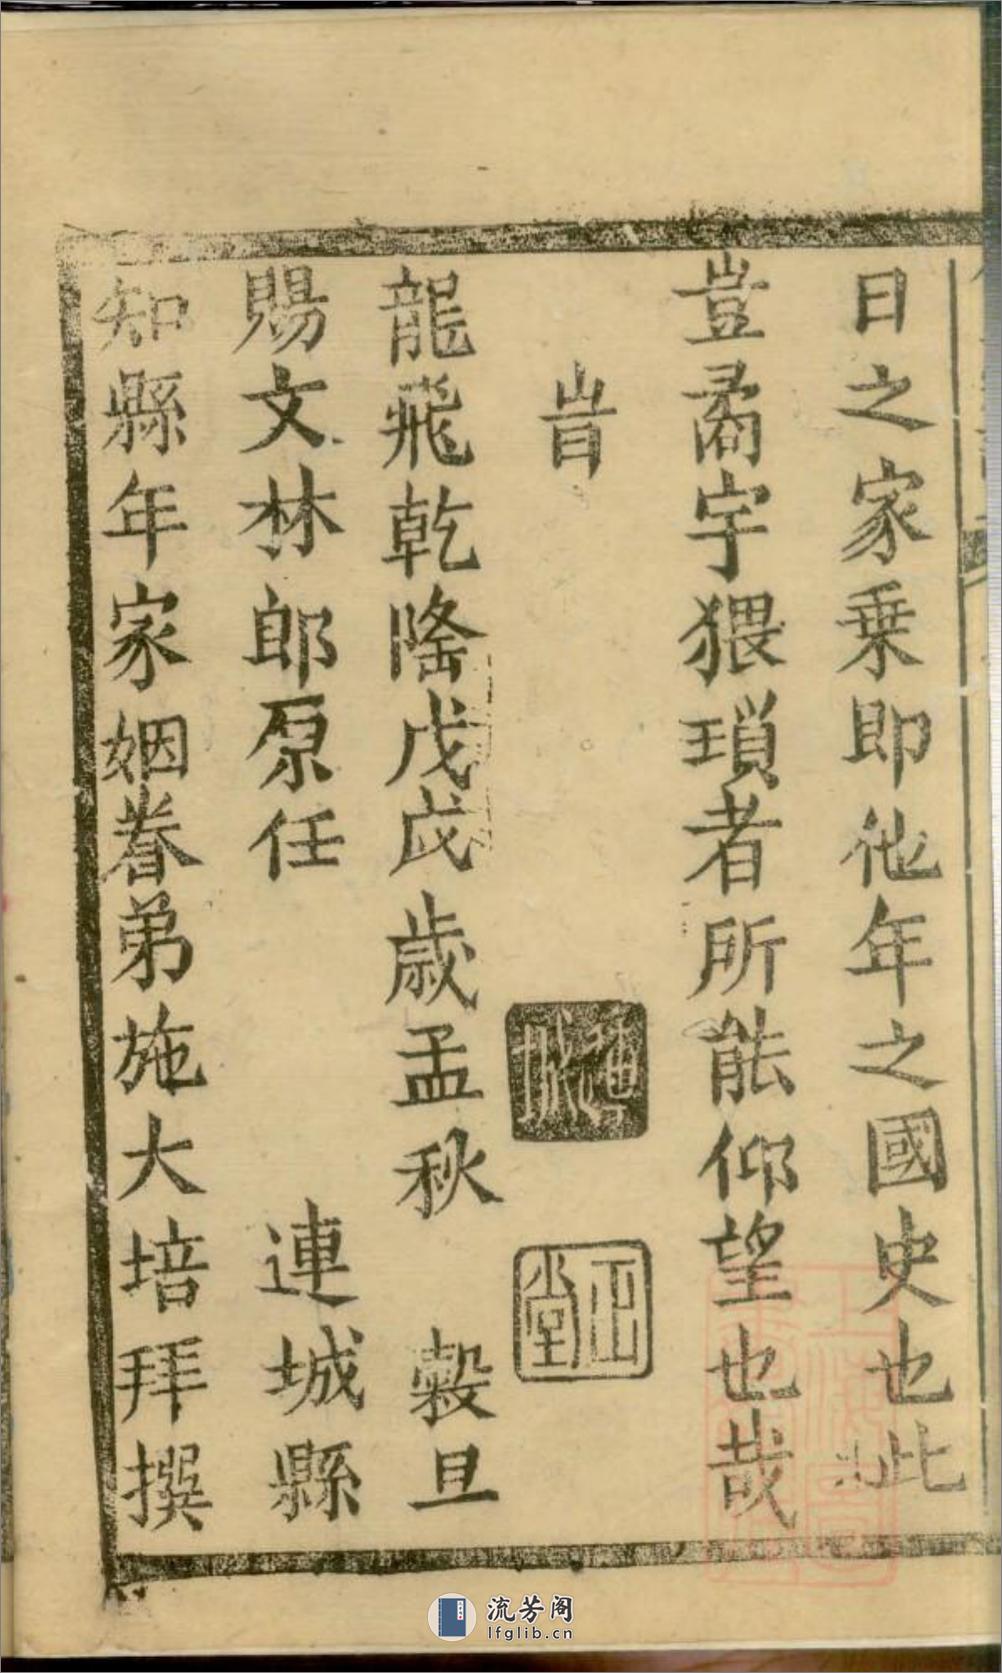 日之家乗即他年之國史也此
豈矞宇猥瑣者所能仰望也哉
旹
龍飛乾隆戊戌歲孟秋 榖旦
賜文林郎原任 連城縣
知縣年家姻眷弟施大培拜撰
正堂
流芳阁
lfglib.cn